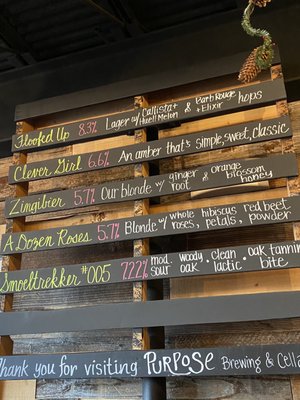 Hooked Up 8.3% Lager w/ Callista + Huell Melon & Barb Rouge + Elixir hops
Clever Girl 6.6% An amber that's simple, sweet, classic
Zingibier 5.7% Our blonde w/ ginger root & orange blossom honey
A Dozen Roses 5.7% Blonde w/ whole roses, hibiscus petals, red beet powder
Smoeltrekker #005 7.22% mod. sour woody oak clean lactic oak tannin bite
Thank you for visiting PURPOSE Brewing & Cella